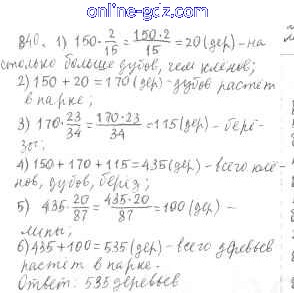 online-gdz.com
840. 1) 150·2/15 = 150·2/15 = 20 (дер) - на
столько больше дубов, чем клёнов;
2) 150 + 20 = 170 (дер) - дубов растёт
в парке;
3) 170·23/34 = 170·23/34 = 115 (дер) - берё-
зы;
4) 150 + 170 + 115 = 435 (дер) - всего клё-
нов, дубов, берёз;
5) 435·20/87 = 435·20/87 = 100 (дер) -
липы;
6) 435 + 100 = 535 (дер) - всего деревьев
растёт в парке.
Ответ: 535 деревьев